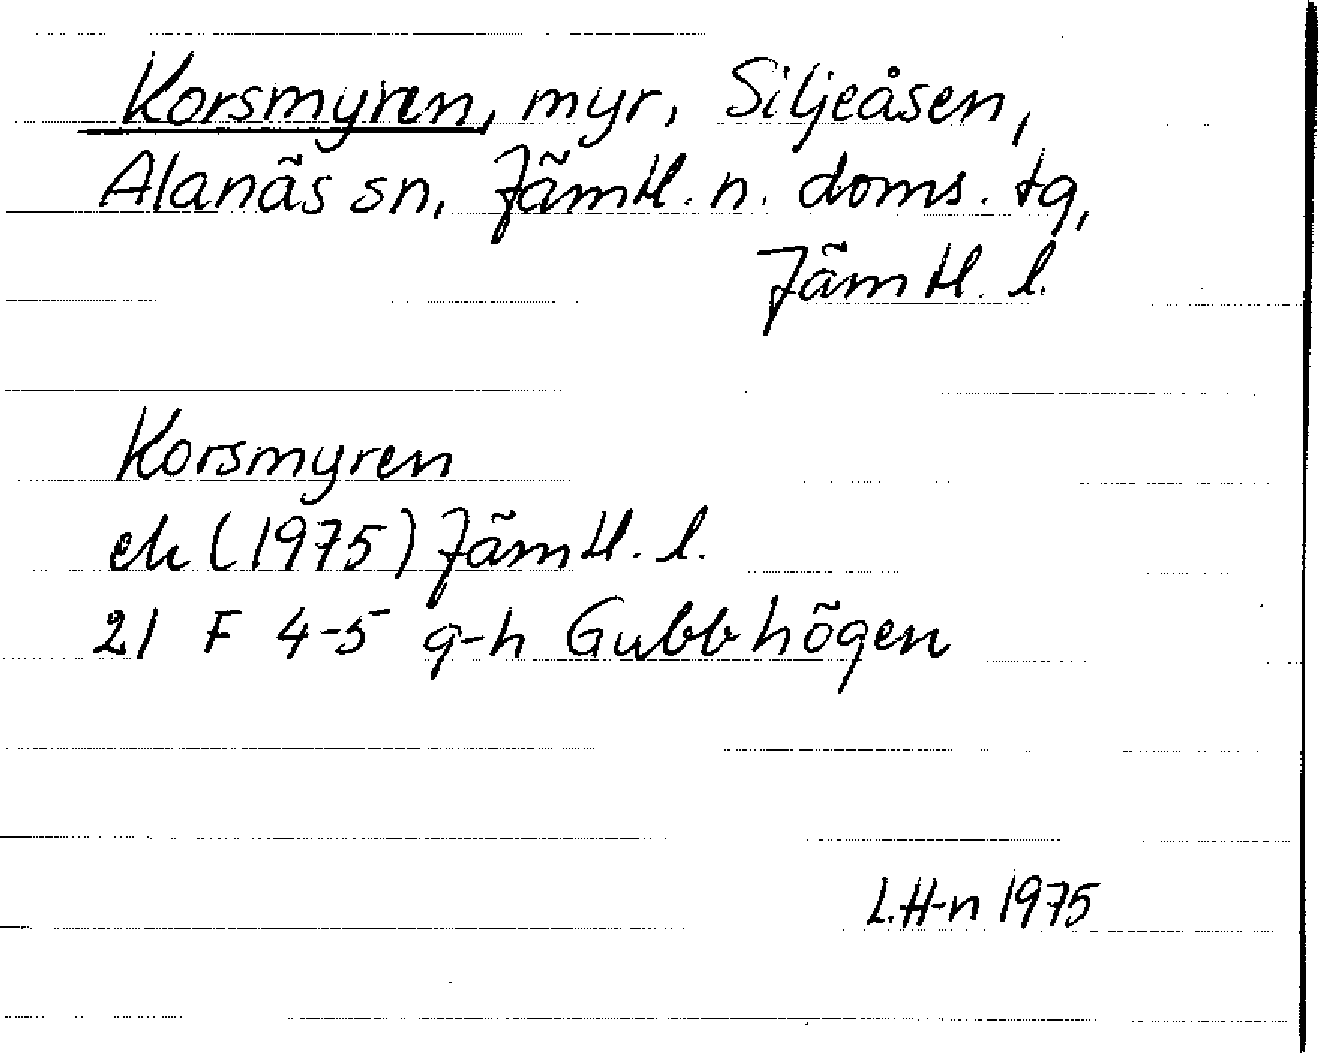 Korsmyren, myr, Siljeåsen,
Alanäs sn, Jämtl. n. doms. tg,
Jämtl. l.
Korsmyren
ek (1975) Jämtl. l.
21 F 4-5 g-h Gubbhögen
L.H-n 1975